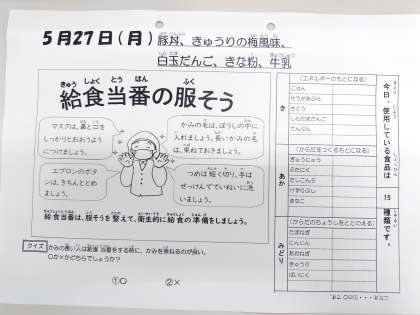 5月27日(月)
豚丼、きゅうりの梅風味、
白玉だんご、きな粉、牛乳
給食当番の服そう
きゅう しょく とう ばん ふく
マスクは、鼻と口を
しっかりとおおうよう
につけましょう。
かみの毛は、ぼうしの中に
入れましょう。長いかみの毛
は、束ねておきましょう。
エプロンのボタ
ンは、きちんととめ
ましょう。
つめは短く切り、手は
せっけんでていねいに洗
いましょう。
給食当番は、服そうを整えて、衛生的に給食の準備をしましょう。
クイズ
かみの長い人は給食当番をする時に、かみを束ねるのが良い。
○か×かどちらでしょうか?
①○ ②×
今日、使用している食品は
15
種類です。
き
(エネルギーのもとになる)
ごはん
さとう
しらたまだんご
でんぷん
あか
(からだをつくるもとになる)
ぎゅうにゅう
ぶたにく
きなこ
みどり
(からだのちょうしをととのえる)
たまねぎ
にんじん
きゅうり